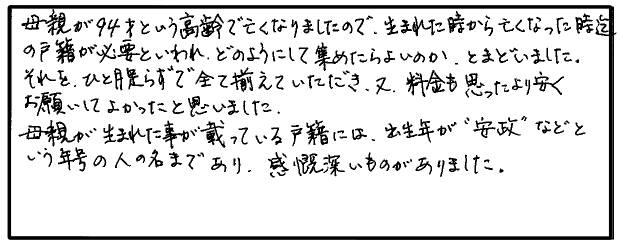 母親が94才という高齢で亡くなりましたので、生まれた時から亡くなった時迄
の戸籍が必要といわれ、どのようにして集めたらよいのか、とまどいました。
それを、ひと月足らずで全て揃えていただき、又、料金も思ったより安く
お願いしてよかったと思いました。
母親が生まれた事が載っている戸籍には、出生年が“安政”などと
いう年号の人の名まであり、感慨深いものがありました。